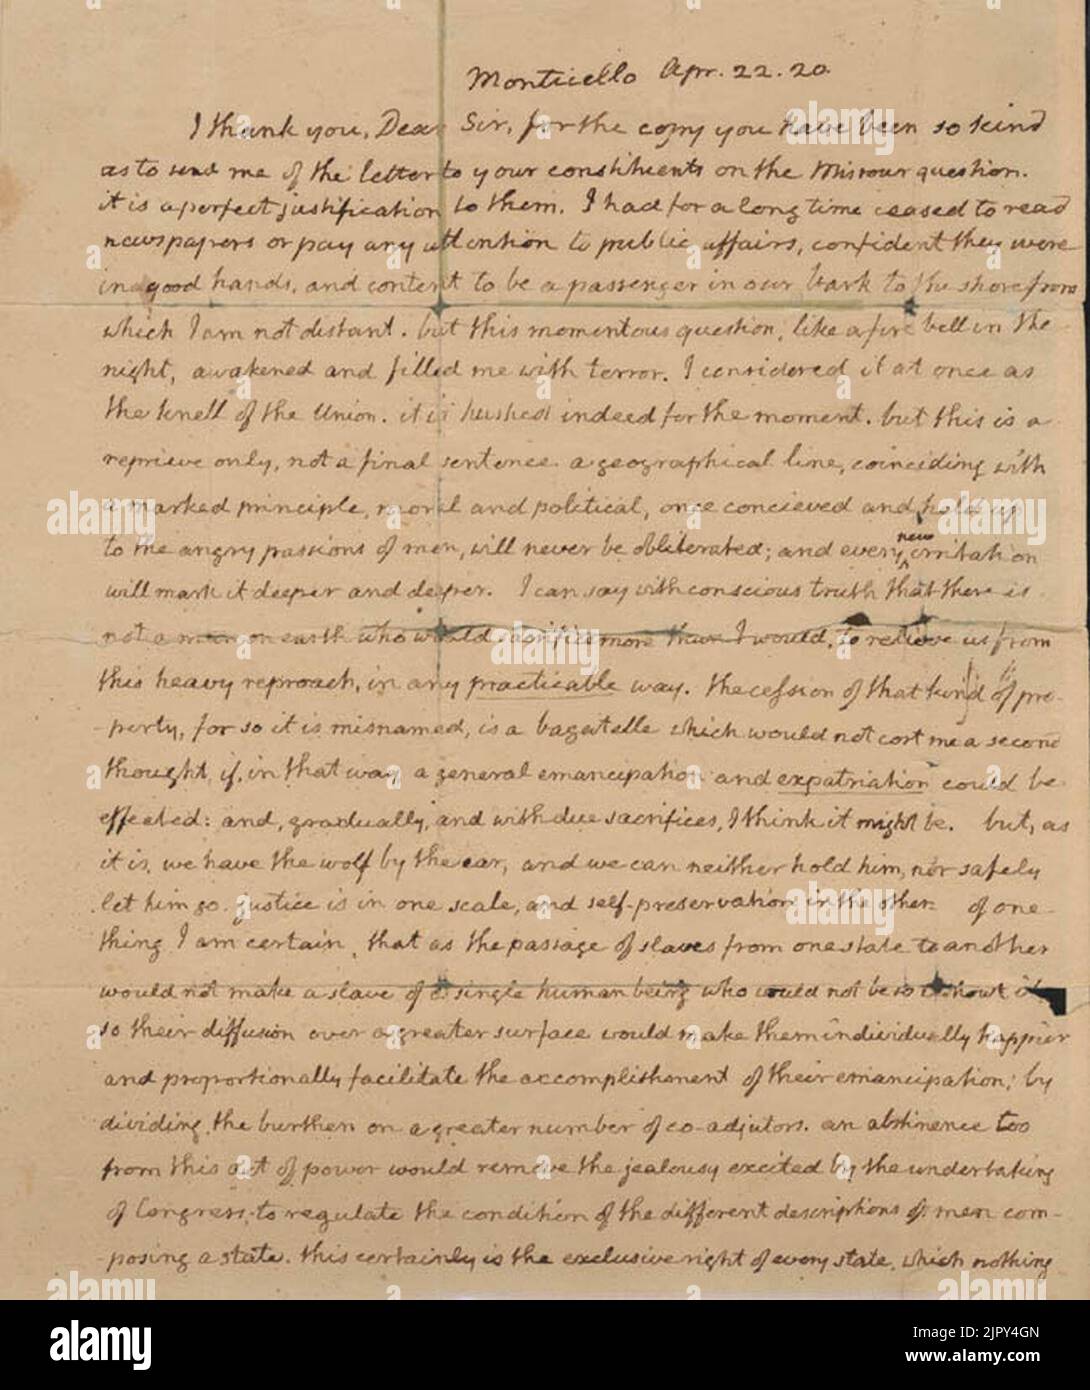 Monticello Apr. 22. 20.
I thank you, Dear Sir, for the copy you have been so kind
as to send me of the letter to your constituents on the Missouri question.
it is a perfect justification to them. I had for a long time ceased to read
newspapers or pay any attention to public affairs, confident they were
in good hands, and content to be a passenger in our bark to the shore from
which I am not distant. but this momentous question, like a fire bell in the
night, awakened and filled me with terror. I considered it at once as
the knell of the Union. it is hushed indeed for the moment. but this is a
reprieve only, not a final sentence. a geographical line, coinciding with
a marked principle, moral and political, once concieved and held up
to the angry passions of men, will never be obliterated; and every new irritation
will mark it deeper and deeper. I can say with conscious truth that there is
not a man on earth who would sacrifice more than I would, to relieve us from
this heavy reproach, in any practicable way. the cession of that kind of pro-
-perty, for so it is misnamed, is a bagatelle which would not cost me a second
thought, if, in that way, a general emancipation and expatriation could be
effected: and, gradually, and with due sacrifices, I think it might be. but, as
it is, we have the wolf by the ear, and we can neither hold him, nor safely
let him go. justice is in one scale, and self-preservation in the other. of one
thing I am certain, that as the passage of slaves from one state to another
would not make a slave of a single human being who would not be so without it,
so their diffusion over a greater surface would make them individually happier
and proportionally facilitate the accomplishment of their emancipation; by
dividing the burthen on a greater number of co-adjutors. an abstinence too
from this act of power would remove the jealousy excited by the undertaking
of Congress, to regulate the condition of the different descriptions of men com-
-posing a state. this certainly is the exclusive right of every state, which nothing
alamy
Image ID: 2JPY4GN
www.alamy.com